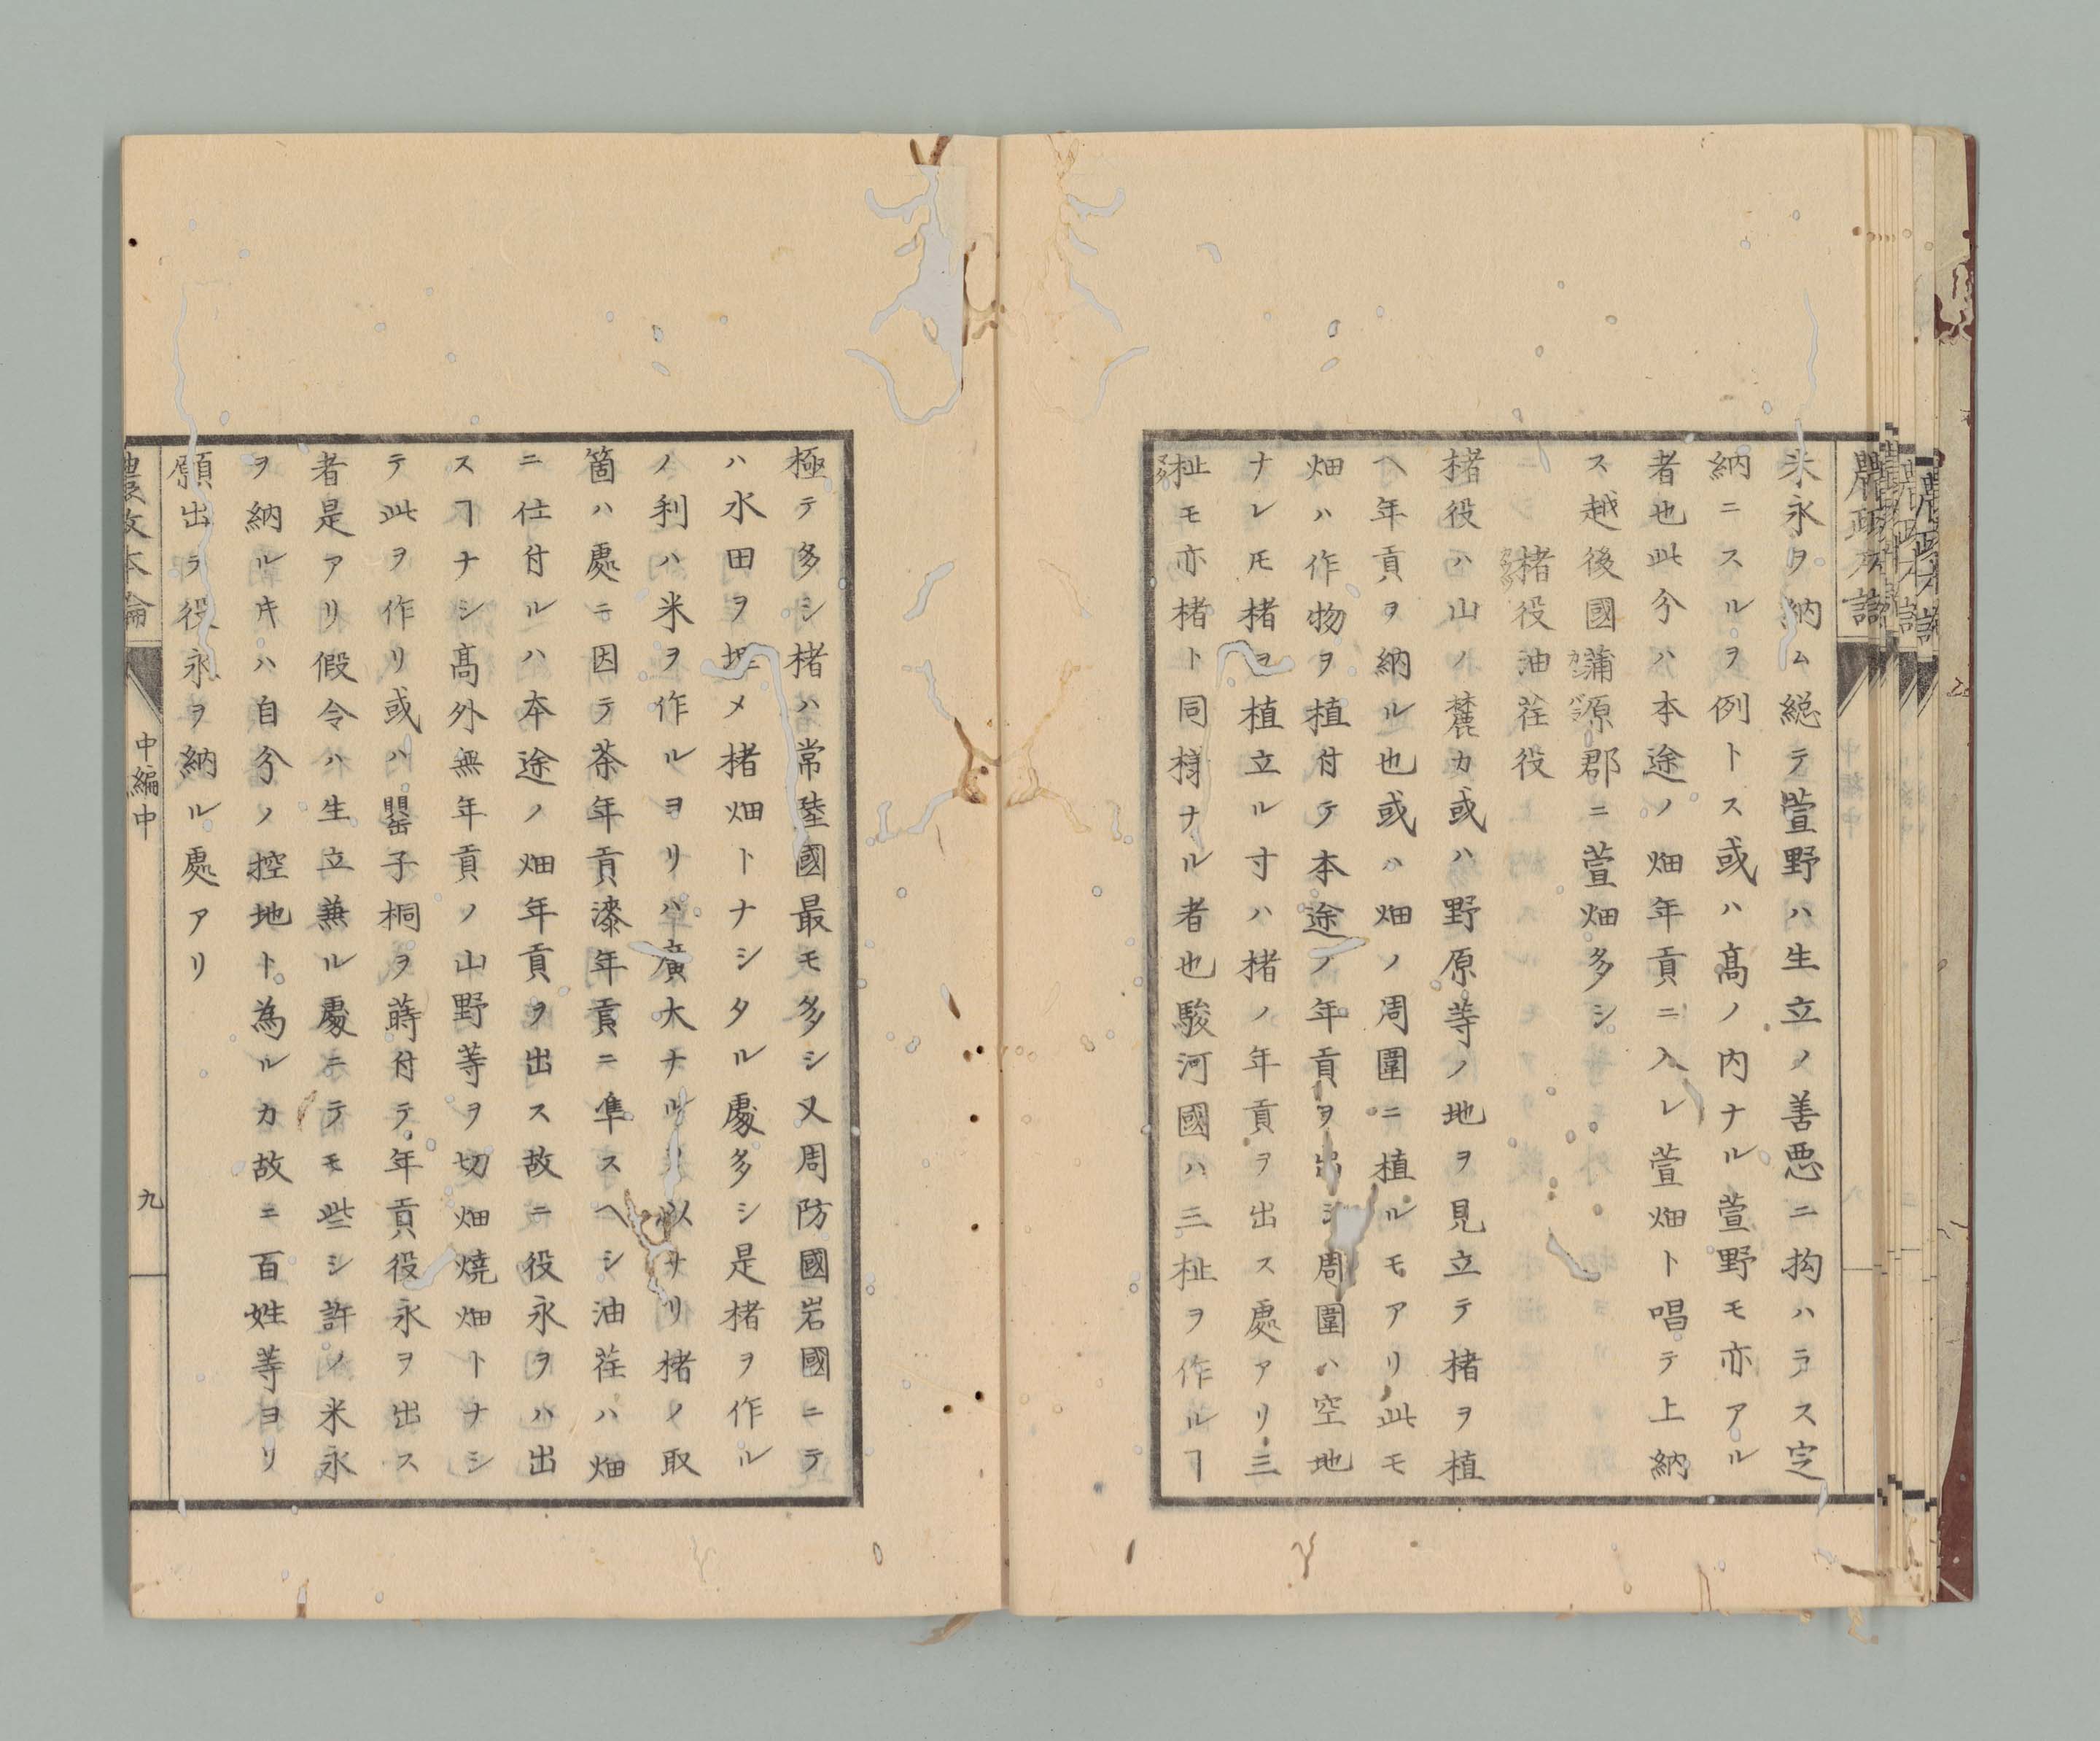 米永ヲ納ム総テ萱野ハ生立ノ善悪ニ拘ハラス定
納ニスルヲ例トス或ハ髙ノ内ナル萱野モ亦アル
者也此分ハ本途ノ畑年貢ニ入レ萱畑ト唱テ上納
ス越後國蒲原郡ニ萱畑多シ
楮役油荏役
楮役ハ山ノ麓カ或ハ野原等ノ地ヲ見立テ楮ヲ植
ヘ年貢ヲ納ル也或ハ畑ノ周圍ニ植ルモアリ此モ
畑ハ作物ヲ植付テ本途ノ年貢ヲ出シ周圍ハ空地
ナレ𪜈楮ヲ植立ル寸ハ楮ノ年貢ヲ出ス處アリ三
椏モ亦楮ト同様ナル者也駿河國ハ三椏ヲ作ルヿ
極テ多シ楮ハ常陸國最モ多シ又周防國岩國ニテ
ハ水田ヲ埋メ楮畑トナシタル處多シ是楮ヲ作ル
ノ利ハ米ヲ作ルヨリハ廣大ナル以ナリ楮ノ取
箇ハ處ニ因テ茶年貢漆年貢ニ準スヘシ油荏ハ畑
ニ仕付ルハ本途ノ畑年貢ヲ出ス故ニ役永ヲハ出
スヿナシ髙外無年貢ノ山野等ヲ切畑焼畑トナシ
テ此ヲ作リ或ハ罌子桐ヲ蒔付テ年貢役永ヲ出ス
者是アリ假令ハ生立兼ル處ニテモ些シ許ノ米永
ヲ納ル𬼀ハ自分ノ控地ト為ルカ故ニ百姓等ヨリ
願出テ役永ヲ納ル處アリ
農政本論
中編中
九